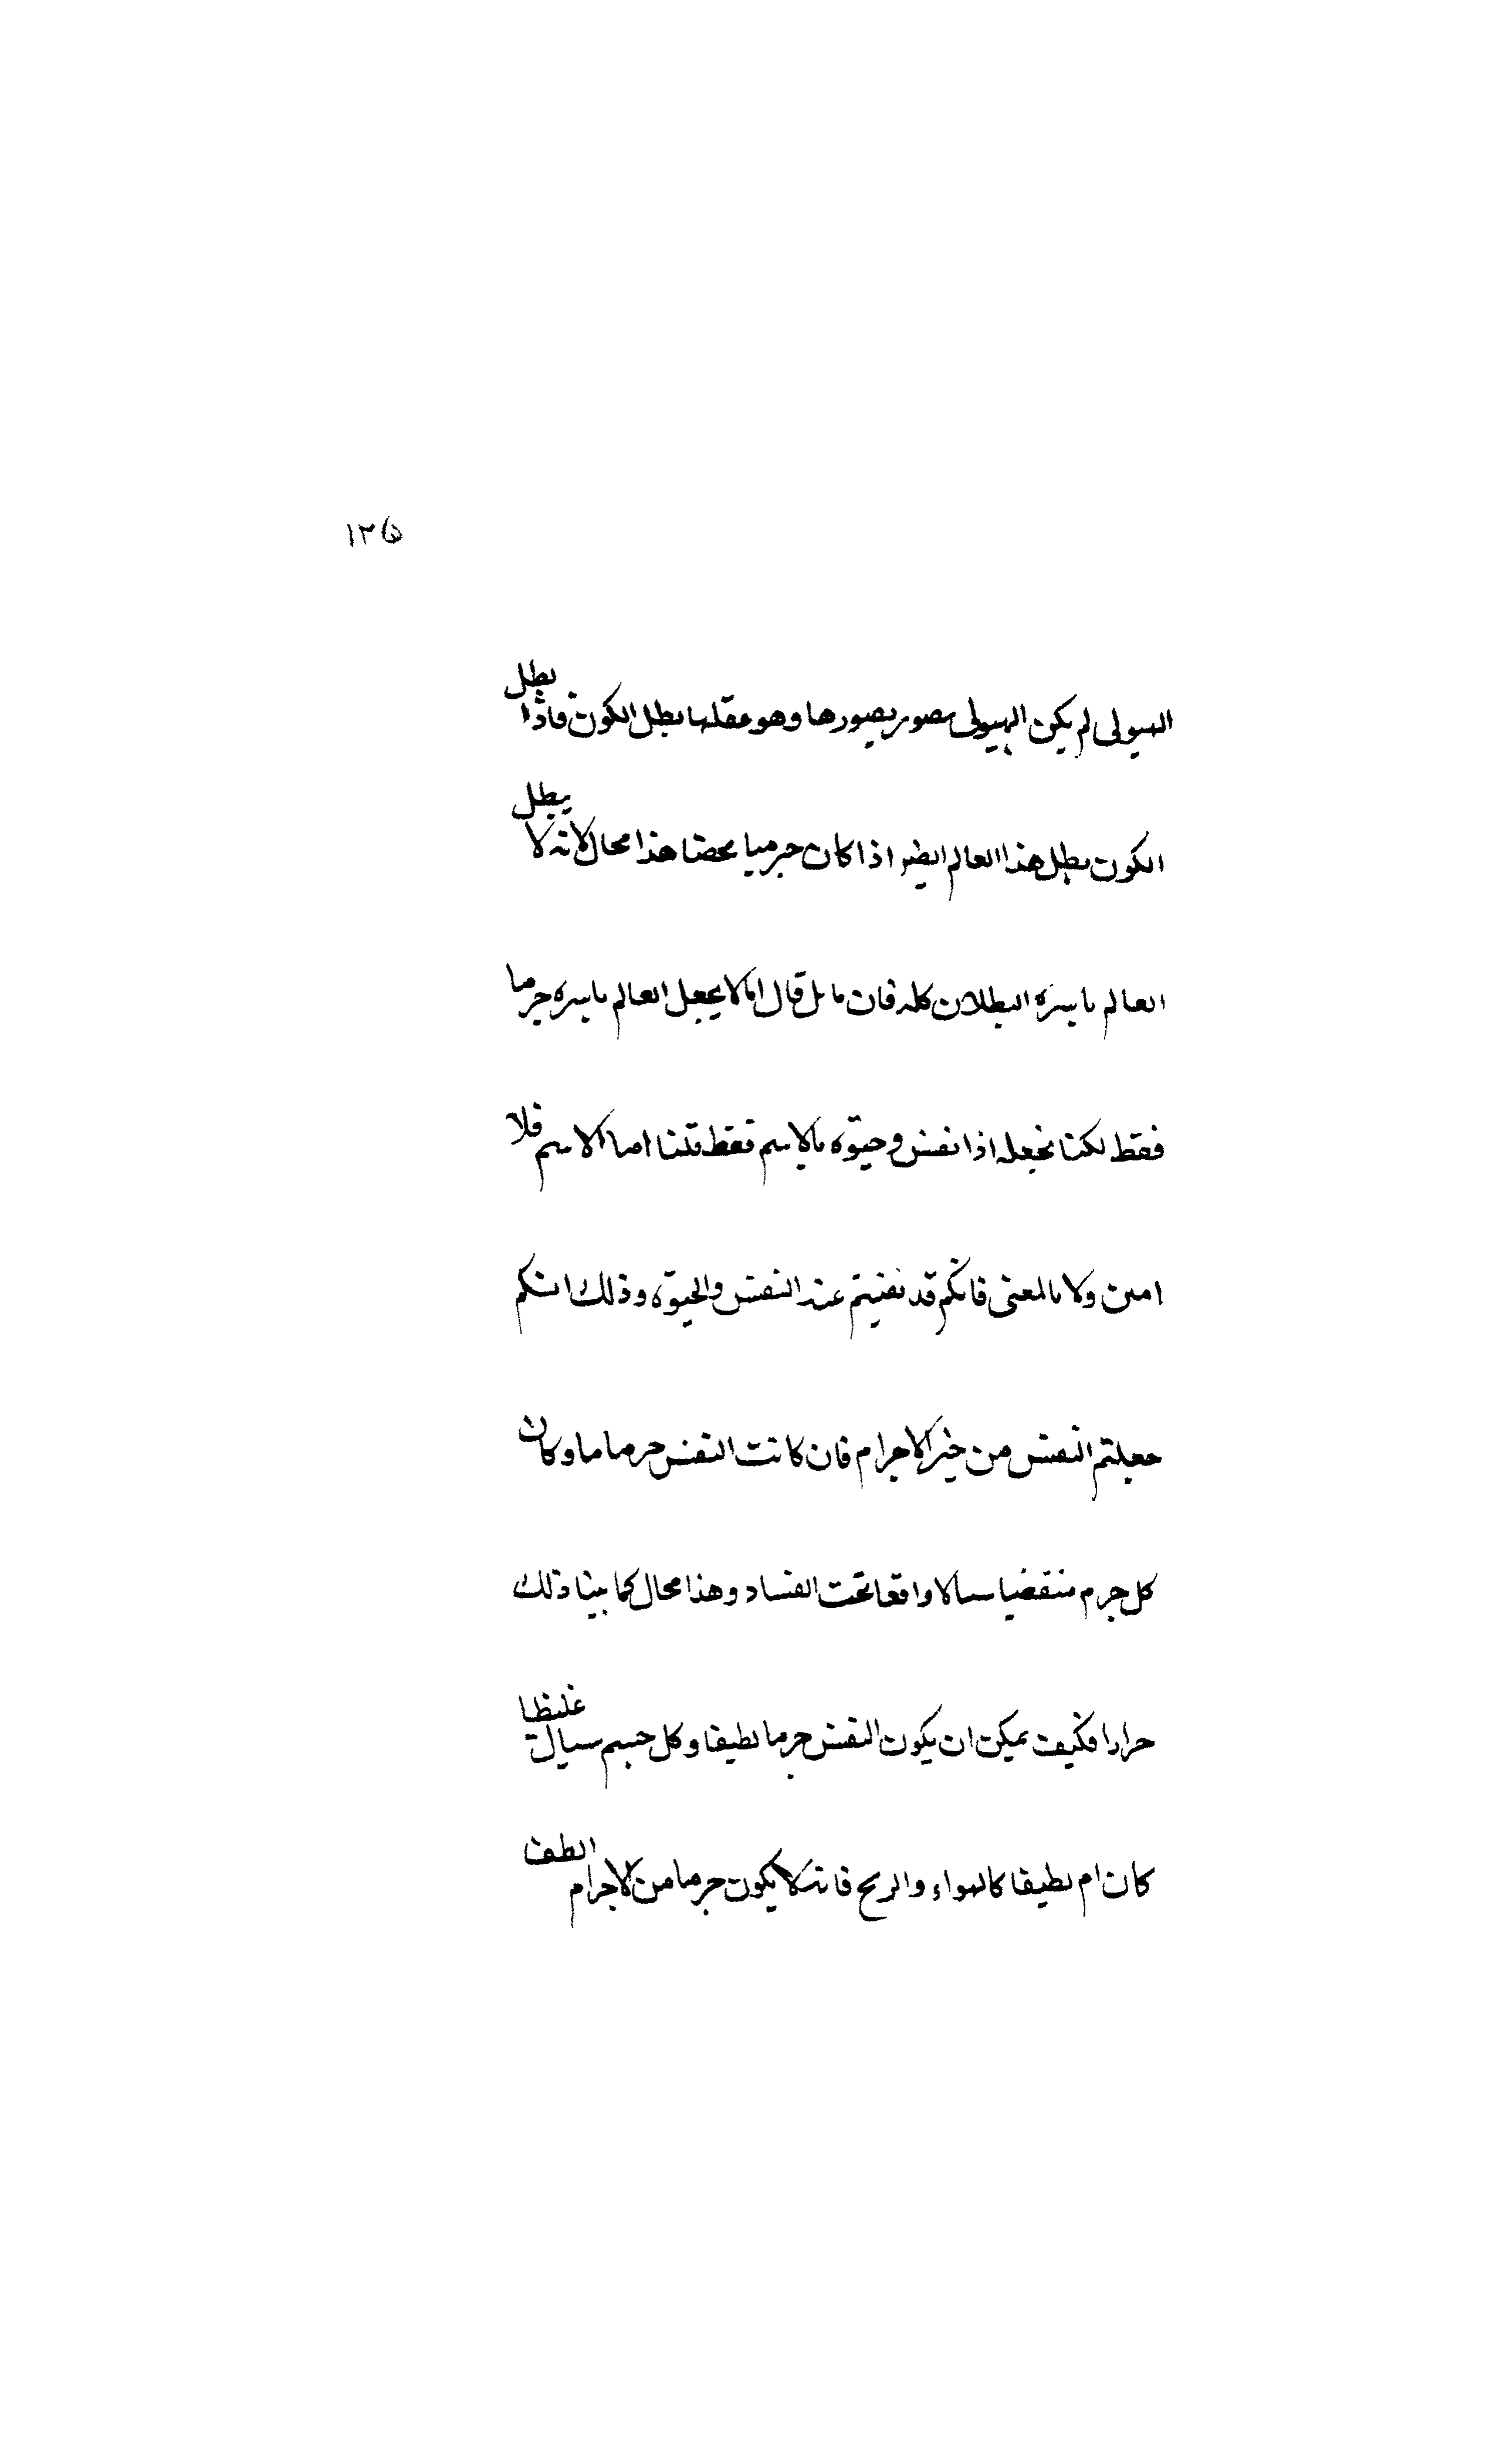 ١٢۵
الهيولى لم يكن الهيولى مصور يصورها وهو عقلها بطل الكون فاذا بطل
الكون بطل هذا العالم ايضا اذا كان جرميا محضا هذا محال لانه لا يبطل
العالم باسره البطلان كله فان قال انا لا نجعل العالم باسره جرما
فقط لكنا نجعله اذا نفس وحيوة بالاسم فقط قلنا اما الاسم فلا
ولا بالمعنى فانكم قد نفيتم عنه النفس والحيوة وذلك انكم
جعلتم النفس من خير الاجرام فان كانت النفس جرما ما وكان
كل جرم منتقضيا سيالا واقعا تحت الفساد وهذا محال كما بينا ذلك
مرارا فكيف يمكن ان يكون النفس جرما لطيفا وكل جسم سيال غليظا
كان ام لطيفا كالهواء والريح فانه لا يكون جرما من الاجرام الطف